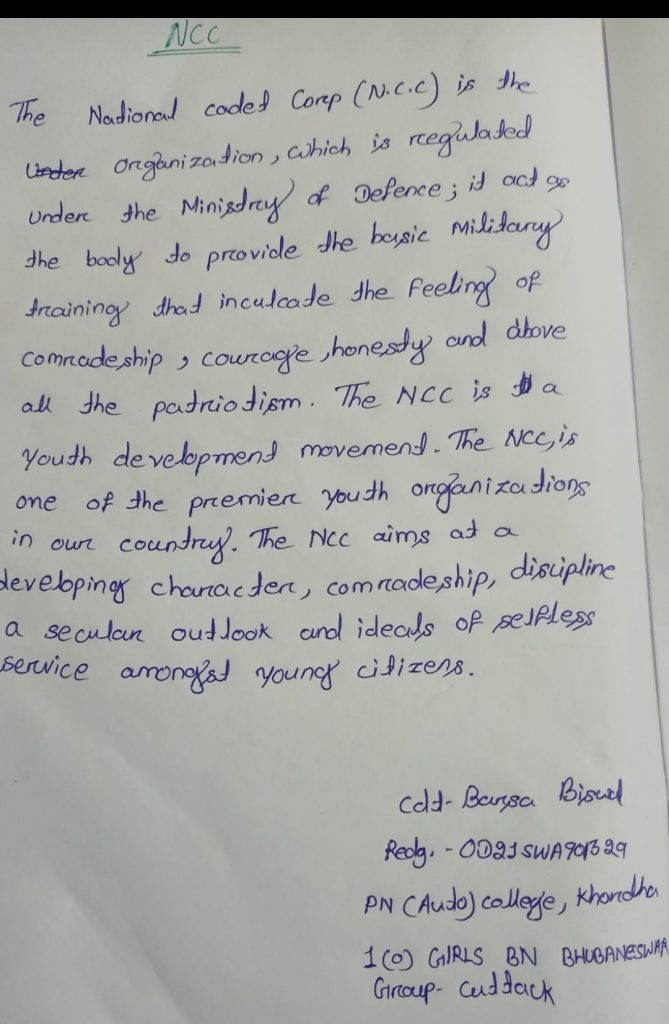 NCC
The National cadet Corp (N.C.C) is the
under organization, which is regulated
under the Ministry of Defence; it act as
the body to provide the basic Military
training that inculcade the Feeling of
comradeship, courage, honesty and above
all the patriotism. The NCC is a
youth development movement. The NCC, is
one of the premier youth organizations
in our country. The NCC aims at a
developing character, comradeship, discipline
a secular outlook and ideals of selfless
service amongst young citizens.
Cdt- Barsa Biswal
Redg. - OD21SWA901329
PN (Auto) college, Khordha
1 (O) GIRLS BN BHUBANESWAR
Group- Cuttack